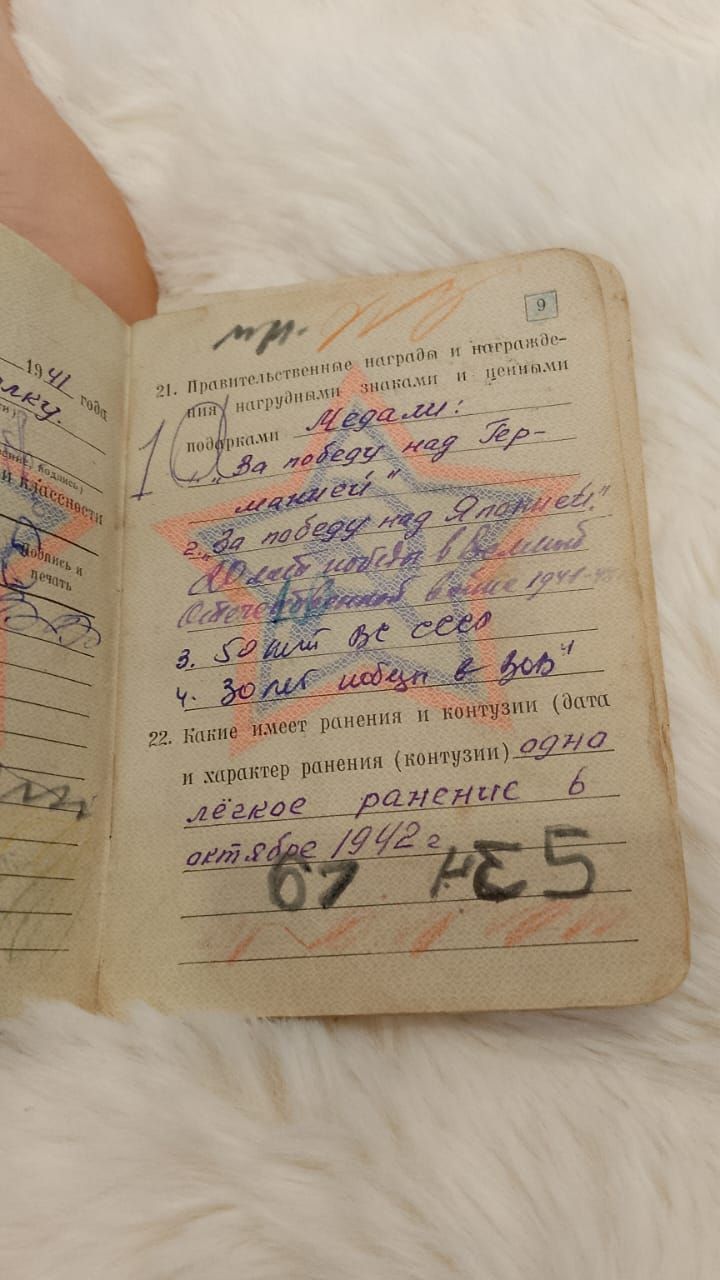 1941 года
лку.
и классности
подпись и
печать
9
21. Правительственные награды и награжде-
ния нагрудными знаками и ценными
подарками Медали:
1. „За победу над Гер-
манией"
2. „За победу над Японией."
20 лет победы в Великой
Отечественной войне 1941-45
3. 50 лет ВС СССР
4. 30 лет победы в ВОВ"
22. Какие имеет ранения и контузии (дата
и характер ранения (контузии) одно
лёгкое ранение в
октябре 1942 г